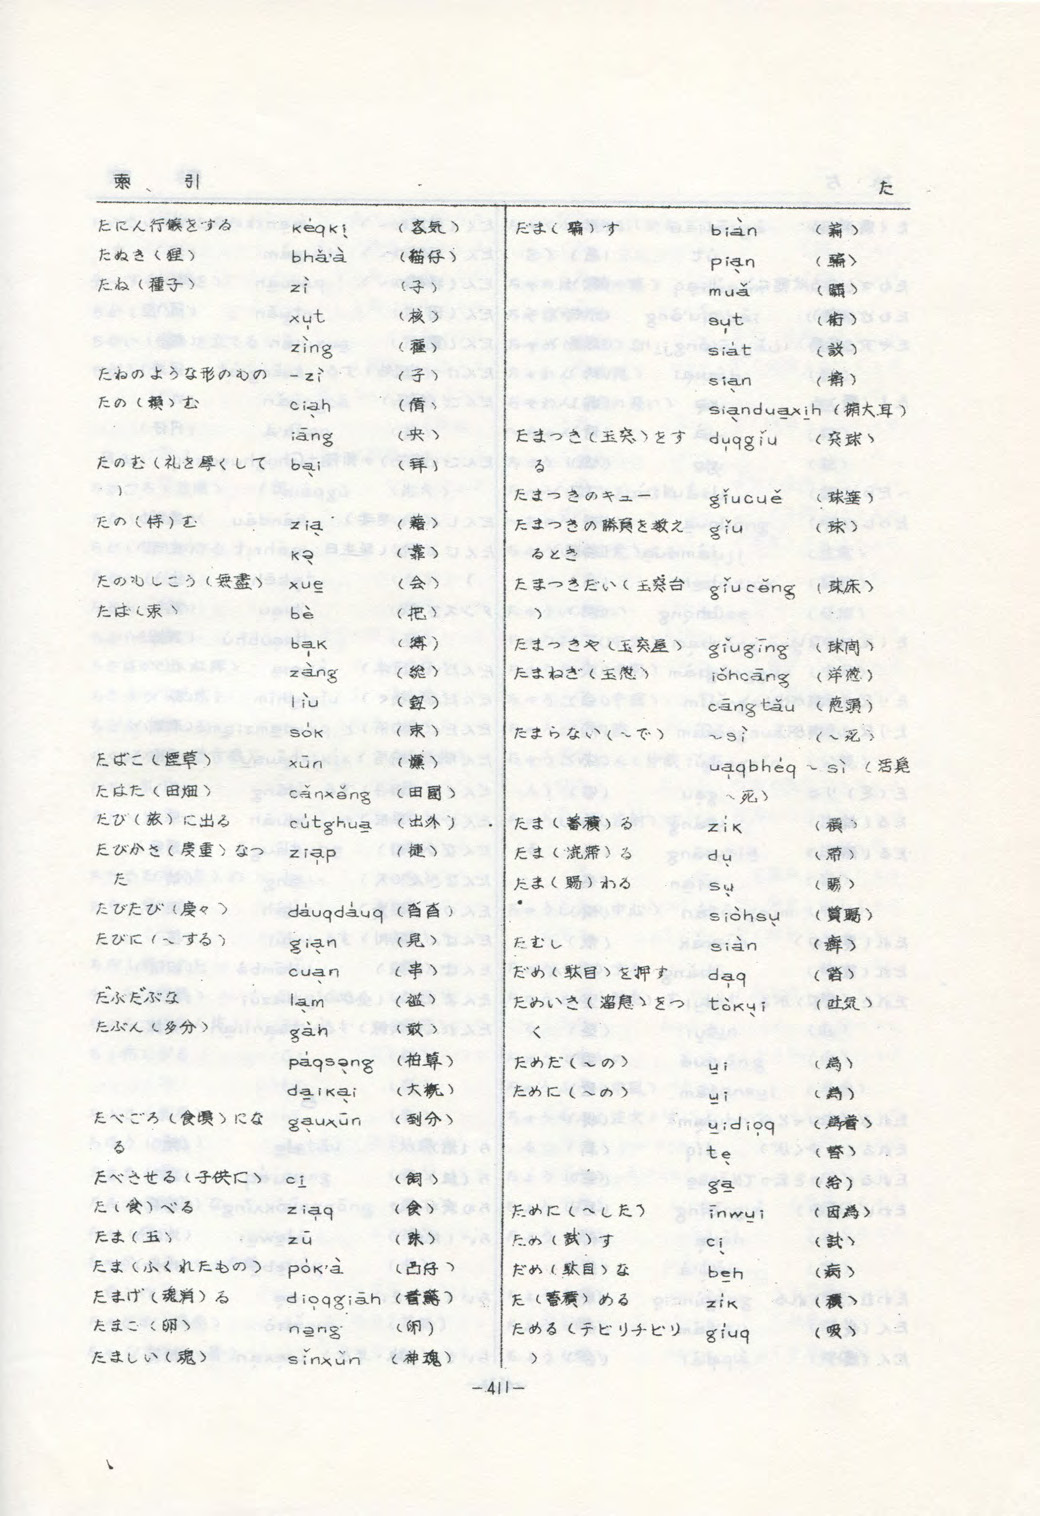 索 引
た
たにん行儀をする kèqkị (客気)
たぬき(狸) bhà'à (猫仔)
たね(種子) zì (子)
xụt (核)
zìng (種)
たねのような形のもの -zì (子)
たの(頼)む ciạh (倩)
iāng (央)
たのむ(礼を厚くして bại (拜)
)
たの(恃)む ziạ (藉)
kạ̍ (靠)
たのもしこう(無盡) xue̱ (会)
たば(束) bè (把)
bạk (縛)
zàng (総)
liu
sók (束)
たばこ(煙草) xūn (燻)
たはた(田畑) cǎnxə̌ng (田園)
たび(旅)に出る cútghua̱ (出外)
たびかさ(度重)なっ ziạp (捷)
た
たびたび(度々) dáuqdáuq
たびに(~する) giạn (見)
cuạn (串)
だぶだぶな lạm
たぶん(多分) gàh (敢)
páqsə̱ng (拍算)
da̱ikại (大概)
たべごろ(食頃)にな gàuxūn (到分)
る
たべさせる(子供に) ci̱ (飼)
た(食)べる ziạq (食)
たま(玉) zū (珠)
たま(ふくれたもの) pók'à (凸仔)
たまげ(魂消)る dioqgiāh (着驚)
たまご(卵) nə̱ng (卵)
たましい(魂) sǐnxǔn (神魂)
だま(騙)す biàn (諞)
piạn (騙)
muǎ (瞞)
sụt
siát (設)
siạn
siạndua̱xi̱h (搧大耳)
たまつき(玉突)をす dụqgǐu (突球)
る
たまつきのキュー gǐucuě (球箠)
たまつきの勝負を数え gǐu (球)
るとき
たまつきだい(玉突台 gǐucə̌ng (球床)
)
たまつきや(玉突屋) gǐugīng (球間)
たまねぎ(玉葱) iǒhcāng (洋葱)
cāngtǎu (葱頭)
たまらない(~で) ~sì (~死)
uạqbhéq~sì (活
~死)
たま(蓄積)る zík (積)
たま(流滞)る dụ (滞)
たま(賜)わる sụ (賜)
siòhsụ (賞賜)
たむし siàn (癬)
だめ(駄目)を押す dạq
ためいき(溜息)をつ tòkụi (吐気)
く
ためだ(~の) u̱i (為)
ために(~の) u̱i (為)
u̱idiọq (為着)
tẹ (替)
ga̱ (給)
ために(~した) īnwu̱i (因為)
ため(試)す cị (試)
だめ(駄目)な be̱h (病)
た(蓄積)める zík (積)
ためる(チビリチビリ gíuq (吸)
)
-411-